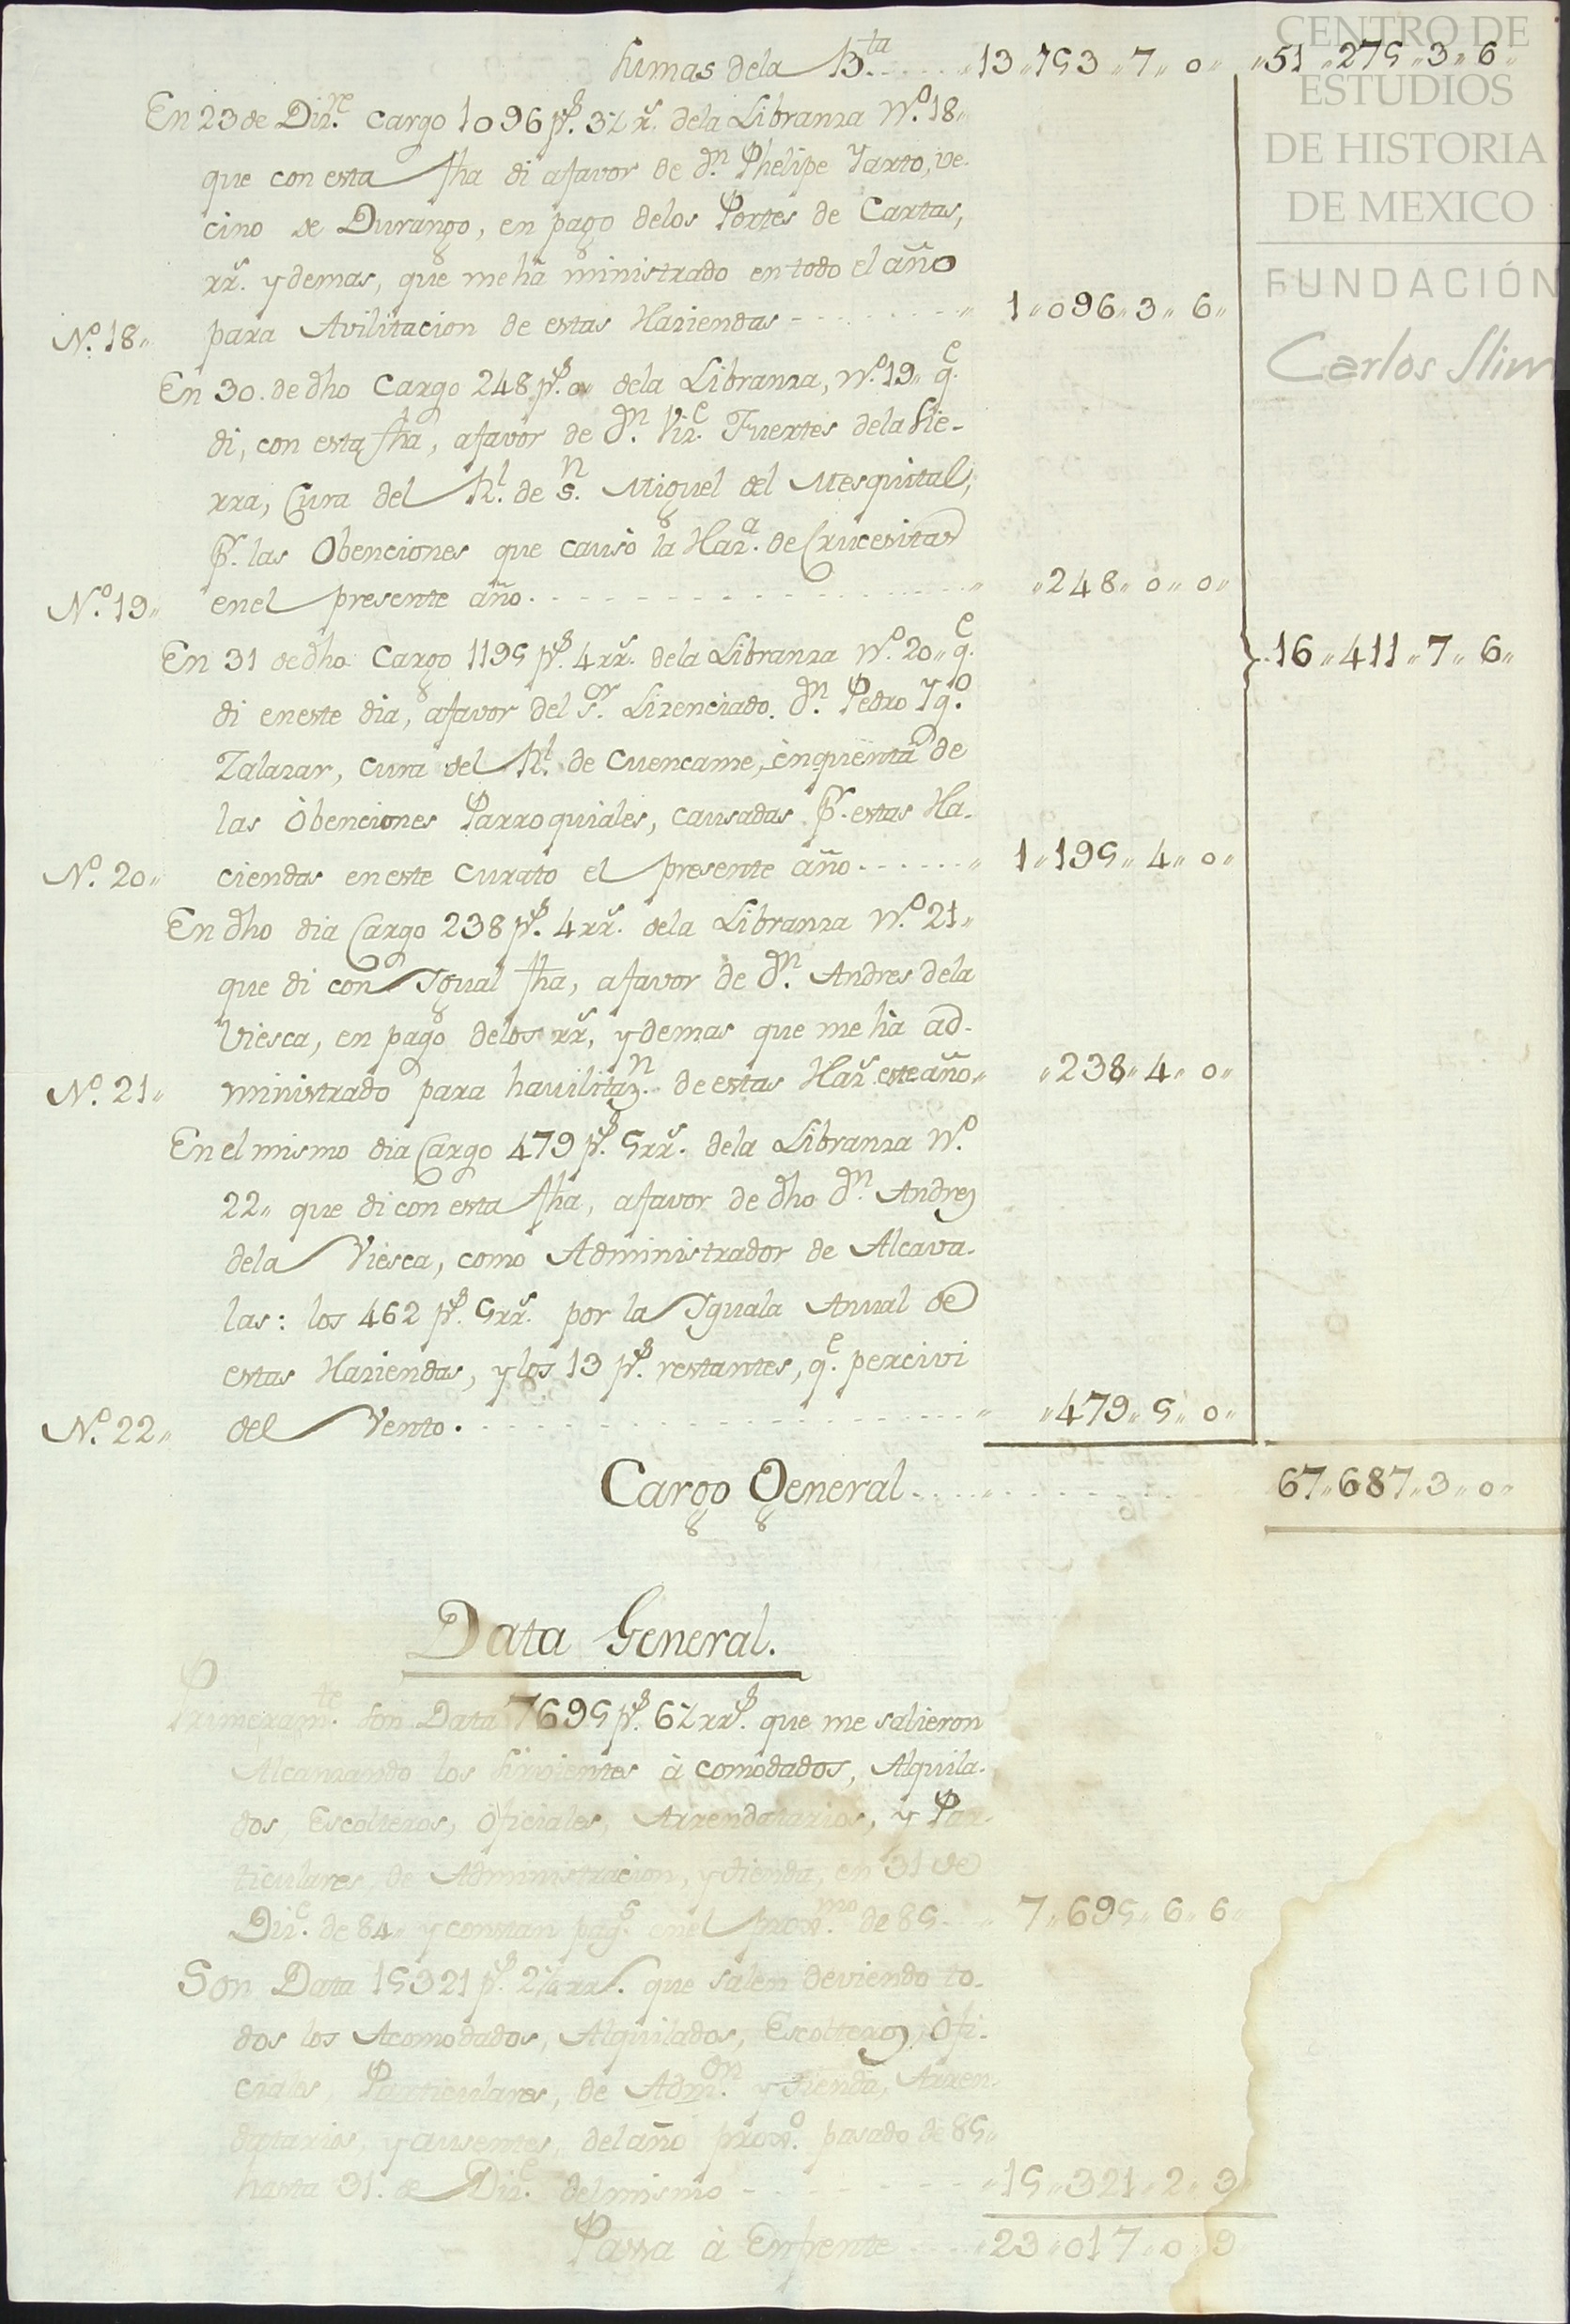 CENTRO DE
ESTUDIOS
DE HISTORIA
DE MEXICO
FUNDACIÓN
Carlos Slim
Sumas dela B.ta ..... „13„153„7„0„ „51„275„3„6„
En 23 de Diz.re Cargo 1096 p.s 3½ r.s dela Libranza N.o 18„
que con esta fha di afavor de d.n Phelipe Yarto, ve-
cino de Durango, en pago delos Portes de Cartas,
rr.s y demas, que me hà ministrado en todo el año
N.o 18„ para Avilitacion de estas Haziendas - - - - „ 1„096„3„6„
En 30. de dho Cargo 248 p.s o„ dela Libranza, N.o 19„ q.e
di, con esta fha, afavor de d.n Viz.e Fuertes dela Sie-
rra, Cura del R.l de S.n Miguel del Mesquital,
p.r las Obenciones que causò la Haz.a de Crucesitas
N.o 19„ enel presente año. - - - - - „ „248„0„0„
En 31 de dho Cargo 1195 p.s 4 rr.s dela Libranza N.o 20„ q.e
}.16„411„7„6„
di en este dia, afavor del S.or Lizenciado. d.n Pedro Yg.o
Zalazar, cura del R.l de Cuencame, enquenta de
las Òbenciones Parroquiales, causadas p.r estas Ha-
N.o 20„ ciendas en este Curato el presente año ...... „ 1„195„4„0„
En dho dia Cargo 238 p.s 4 rr.s dela Libranza N.o 21„
que di con Ygual fha, afavor de d.n Andres dela
Viesca, en pago delos rr.s, y demas que me hà ad-
N.o 21„ ministrado para havilitaz.n de estas Haz.s este año„ „238„4„0„
En el mismo dia Cargo 479 p.s 5 rr.s dela Libranza N.o
22„ que di con esta fha, afavor de dho d.n Andres
dela Viesca, como Administrador de Alcava-
las: los 462 p.s 5 rr.s por la Yguala Anual de
estas Haziendas, y los 13 p.s restantes, q.e percivi
N.o 22„ del Vento. - - - - - - „ „479„5„0„
Cargo General ..... 67„687„3„0„
Data General.
Primeram.te son Data 7695 p.s 6½ rr.s que me salieron
Alcanzando los Sirvientes à comodados, Alquila-
dos, Escolteros, Oficiales, Arrendatarios, y Par-
ticulares, de Administracion, y tienda, en 31 de
Diz.e de 84„ y constan pag.s enel prox.mo de 85. „ 7„695„6„6„
Son Data 15321 p.s 2¼ rr.s que salen deviendo to-
dos los Acomodados, Alquilados, Escolteros, Ofi-
ciales, Particulares, de Adm.on y tienda, Arren-
datarios, y ausentes, del año prox.o pasado de 85„
hasta 31. de Diz.e del mismo - - - - „15„321„2„3
Passa à Enfrente .... „23„017„0„9